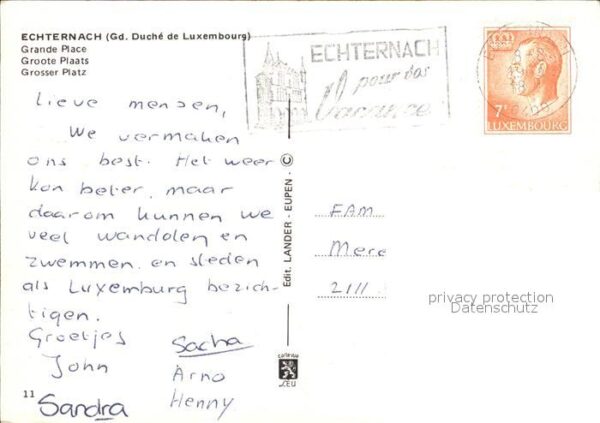 ECHTERNACH (Gd. Duché de Luxembourg)
Grande Place
Groote Plaats
Grosser Platz
ECHTERNACH
pour vos
Vacances
7F
LUXEMBOURG
Lieve mensen,
We vermaken
ons best. Het weer
kon beter, maar
daarom kunnen we
veel wandelen en
zwemmen en steden
als Luxemburg bezich-
tigen.
Groetjes
John
Sacha
Arno
Henny
Sandra
11
Edit. LANDER - EUPEN - ©
FAM
Mere
2111
privacy protection
Datenschutz
CEU